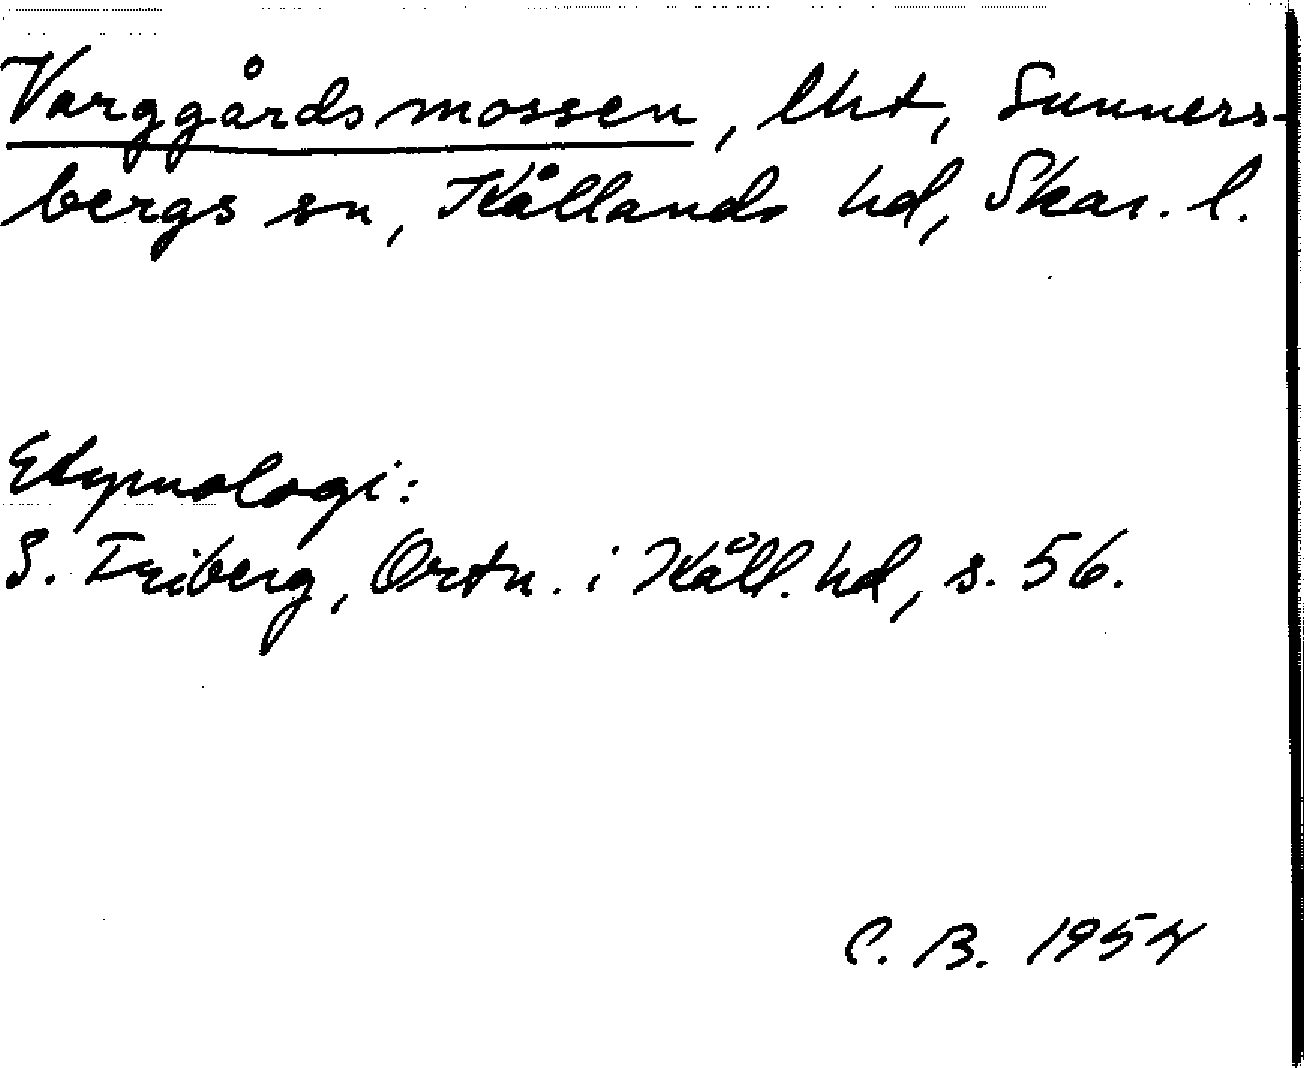 Varggårdsmossen, lht, Sunners-
bergs sn, Kållands hd, Skar. l.
Etymologi:
S. Friberg, Ortn. i Kåll. hd, s. 56.
C. B. 1954